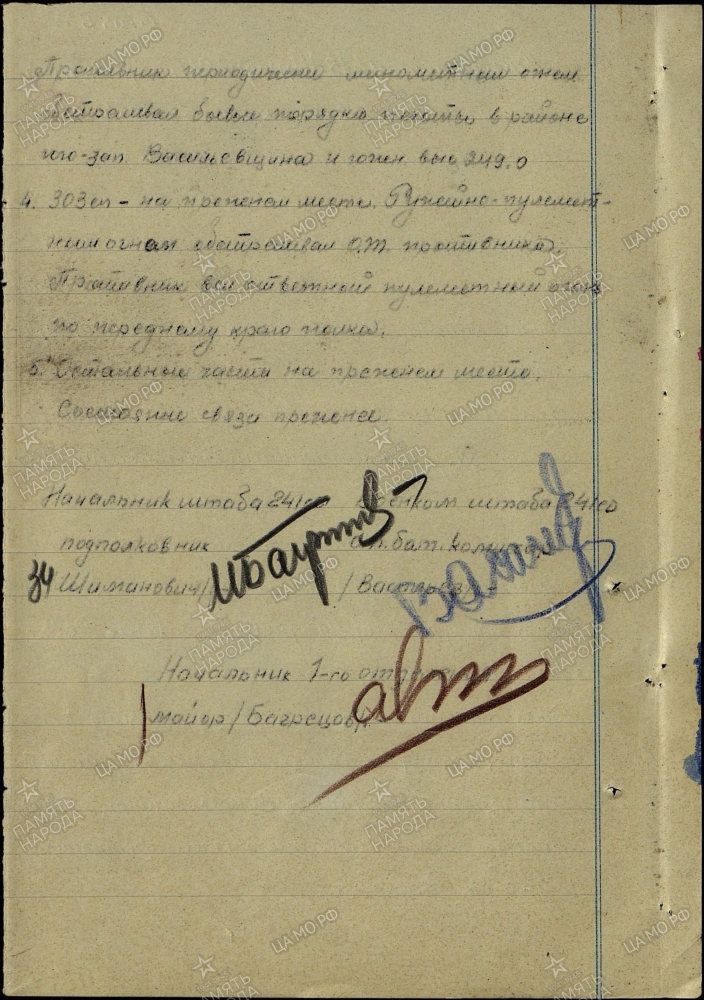 Противник периодически минометным огнем
обстреливал боевые порядки пехоты в районе
юго-зап. Васильевщина и южн выс 249.0
4. 303 сп - на прежнем месте. Ружейно-пулемет-
ным огнем обстреливал О.Т. противника.
Противник вел ответный пулеметный огонь
по переднему краю полка.
5. Остальные части на прежнем месте.
Состояние связи прежнее.
Начальник штаба 241 сд Военком штаба 241 сд
подполковник ст. бат. комиссар
/Шиманович/ /Востров/
Начальник 1-го отд
майор /Багрецов/